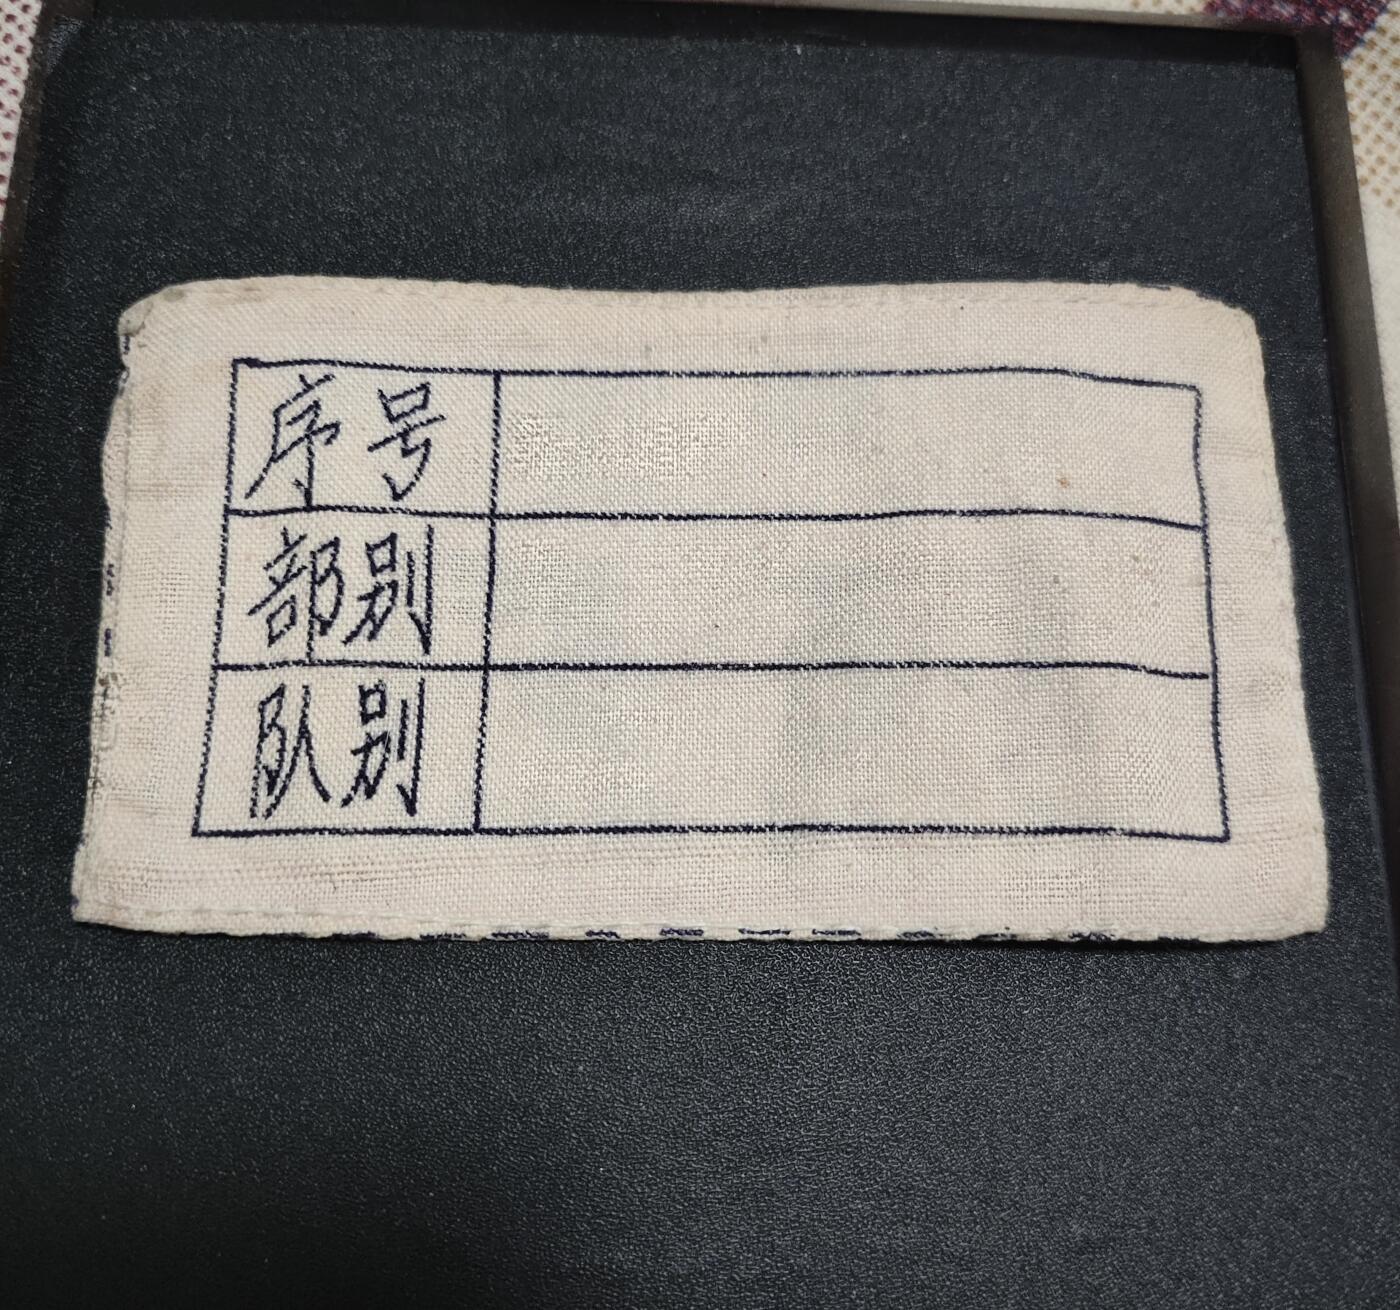 序号
部别
队别